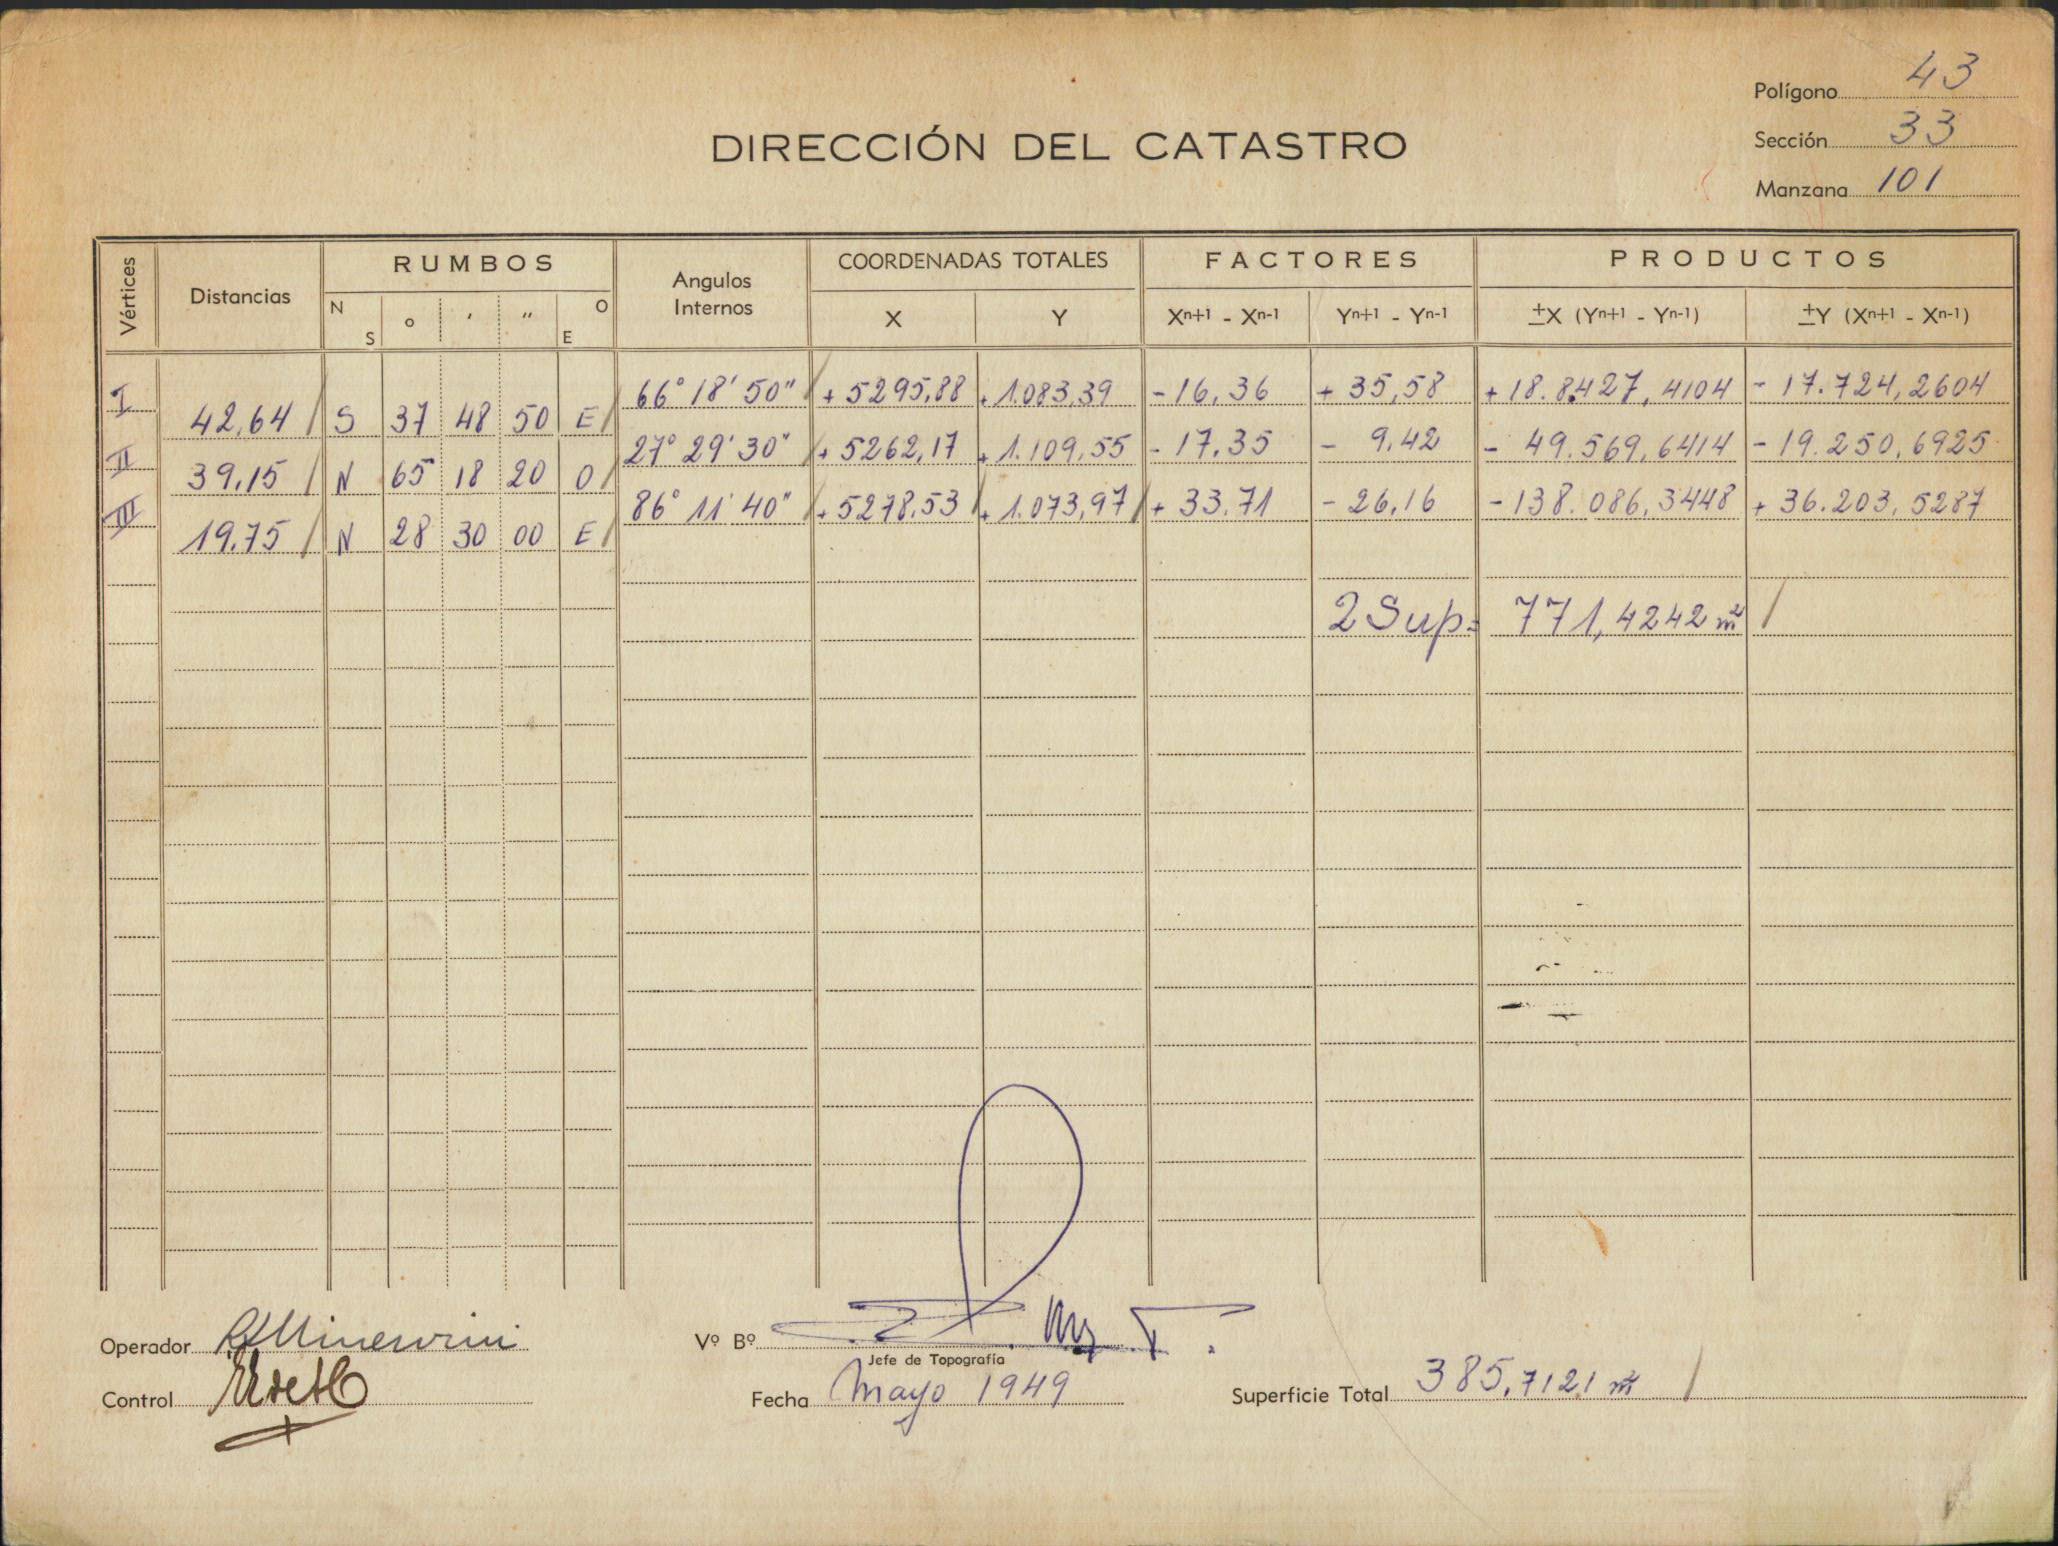 Polígono 43
DIRECCIÓN DEL CATASTRO
Sección 33
Manzana 101
Vértices Distancias RUMBOS Angulos Internos COORDENADAS TOTALES FACTORES PRODUCTOS
N S o ′ ″ O E X Y Xn+1 - Xn-1 Yn+1 - Yn-1 ±X (Yn+1 - Yn-1) ±Y (Xn+1 - Xn-1)
I 66° 18' 50" +5295,88 +1.083,39 -16,36 +35,58 +18.8427,4104 -17.724,2604
42,64 S 37 48 50 E
II 27° 29' 30" +5262,17 +1.109,55 -17,35 -9,42 -49.569,6414 -19.250,6925
39,15 N 65 18 20 O
III 86° 11' 40" +5278,53 +1.073,97 +33,71 -26,16 -138.086,3448 +36.203,5287
19,75 N 28 30 00 E
2 Sup= 771,4242 m²
Operador Minervini
Vº Bº
Jefe de Topografía
Control
Fecha Mayo 1949
Superficie Total 385,7121 m²